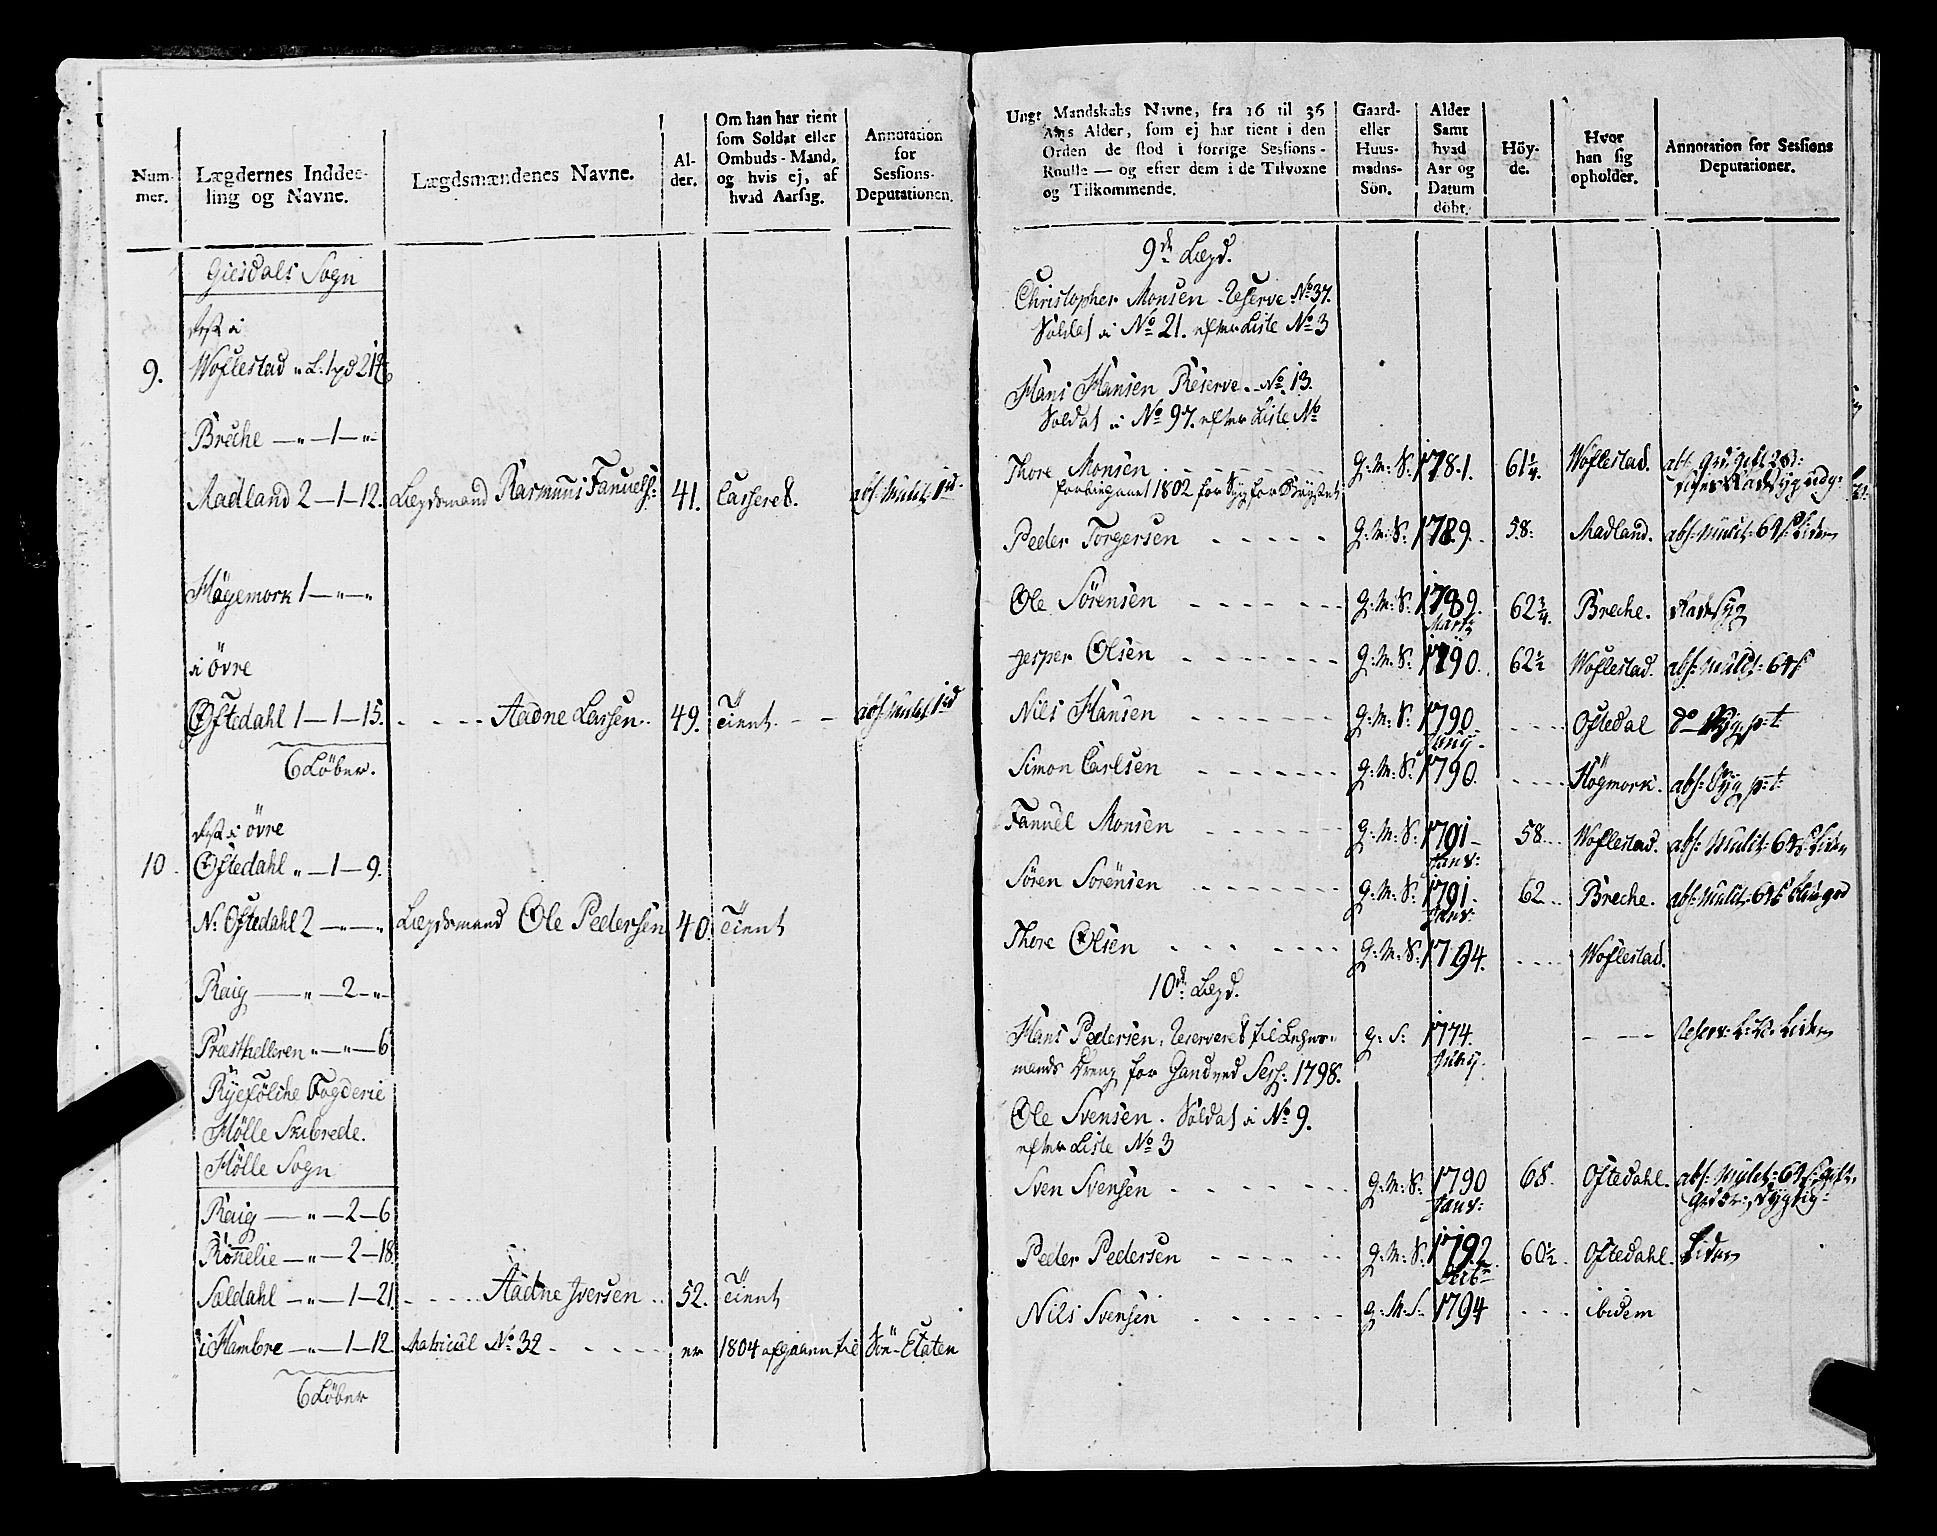 Num-
mer.
Lægdernes Inddee-
ling og Navne.
Lægdsmændenes Navne.
Al-
der.
Om han har tient
som Soldat eller
Ombuds-Mand,
og hvis ej, af
hvad Aarsag.
Annotation
for
Sessions-
Deputationen.
Giesdals Sogn
9. Woflestad " L. 1 pd 21
Breche — " — 1 — "
Madland 2 — 1 — 12. Lægdsmand Rasmus Fanuels: 41. Casseret. abs: Mulct 1 rd
Høgemork 1 — " — "
i övre
Oftedahl 1 — 1 — 15. - - - - Aadne Larsen. 49. Tient. - - abs: Mulct 1 rd
6 Löber.
Rest i övre
10. Oftedahl " — 1 — 9.
N: Oftedahl 2 — " — " Lægdsmand Ole Pedersen 40. Tient
Raig — " — 2 — "
Præsthelleren " — " — 6
Ryefölche Fogderie
Hölle Skibrede.
Hölle Sogn
Raig — " — 2 — 6
Rönnelie — " — 2 — 18.
Soldahl — " — 1 — 21. - - - - Aadne Iversen . . 52. Tient
i Hambre — " — 1 — 12 Matricul No: 32 - - - - - er 1804 afgaaen til Söe-Etaten
6 Löber
Ungt Mandskabs Navne, fra 16 til 36
Aars Alder, som ej har tient i den
Orden de stod i forrige Sessions-
Roulle — og efter dem i de Tilvoxne
og Tilkommende.
Gaard-
eller
Huus-
mands-
Sön.
Alder
Samt
hvad
Aar og
Datum
döbt.
Höy-
de.
Hvor
han sig
opholder.
Annotation for Sessions
Deputationer.
9de Lægd.
Christopher Monsen Reserve No 37.
Soldat i No 21. efter Liste No 3
Hans Hansen Reserve. No 13.
Soldat i No 97. efter Liste No
Thore Monsen . - - - - - g: M: S: 1781. 61 1/4. Woflestad.
forbigaaet 1802 for Syg for Brystet
Peder Torgersen - - - - - g: M: S: 1789. 58. Madland. abs: Mulct: 64 s: Liden
Ole Sörensen - - - - - - - g: M: S: 1789. 62 3/4. Breche. RadeSyg
Martz
Jesper Olsen - - - - - - g: M: S: 1790. 62 1/2 Woflestad. abs: Mulct: 64 s
Nils Hansen - - - - - - - g: M: S: 1790 - - - - Oftedal do Syg p: t
Simon Carlsen - - - - - - g: M: S: 1790. - - - - Högmork. abs: Syg p: t:
Fanuel Monsen - - - - - - g: M: S: 1791 - 58. . . Woflestad. abs: Mulct: 64 s Liden
Janv:
Sören Sorensen - - - - - - - g: M: S: 1791. 62. . Breche. abs: Mulct: 64 s
Janv:
Thore Olsen - - - - - - - g: M: S: 1794. - - - - Woflestad.
10de Lægd.
Hans Pedersen, Reserveret til Lehns-
mands Dreng for Gand ved Sess: 1798. g: S: 1774. - - - -
Ole Svensen. Soldat i No 9.
efter Liste No 3
Sven Svensen - - - - - - g: M: S: 1790 68. Oftedahl. abs: Mulct: 64 s:
Janv:
Peder Pedersen - - - - - g: M: S: 1792 60 1/2. Oftedahl. Liden
Nils Svensen - - - - - - g: M: S: 1794 - - - - ibidem